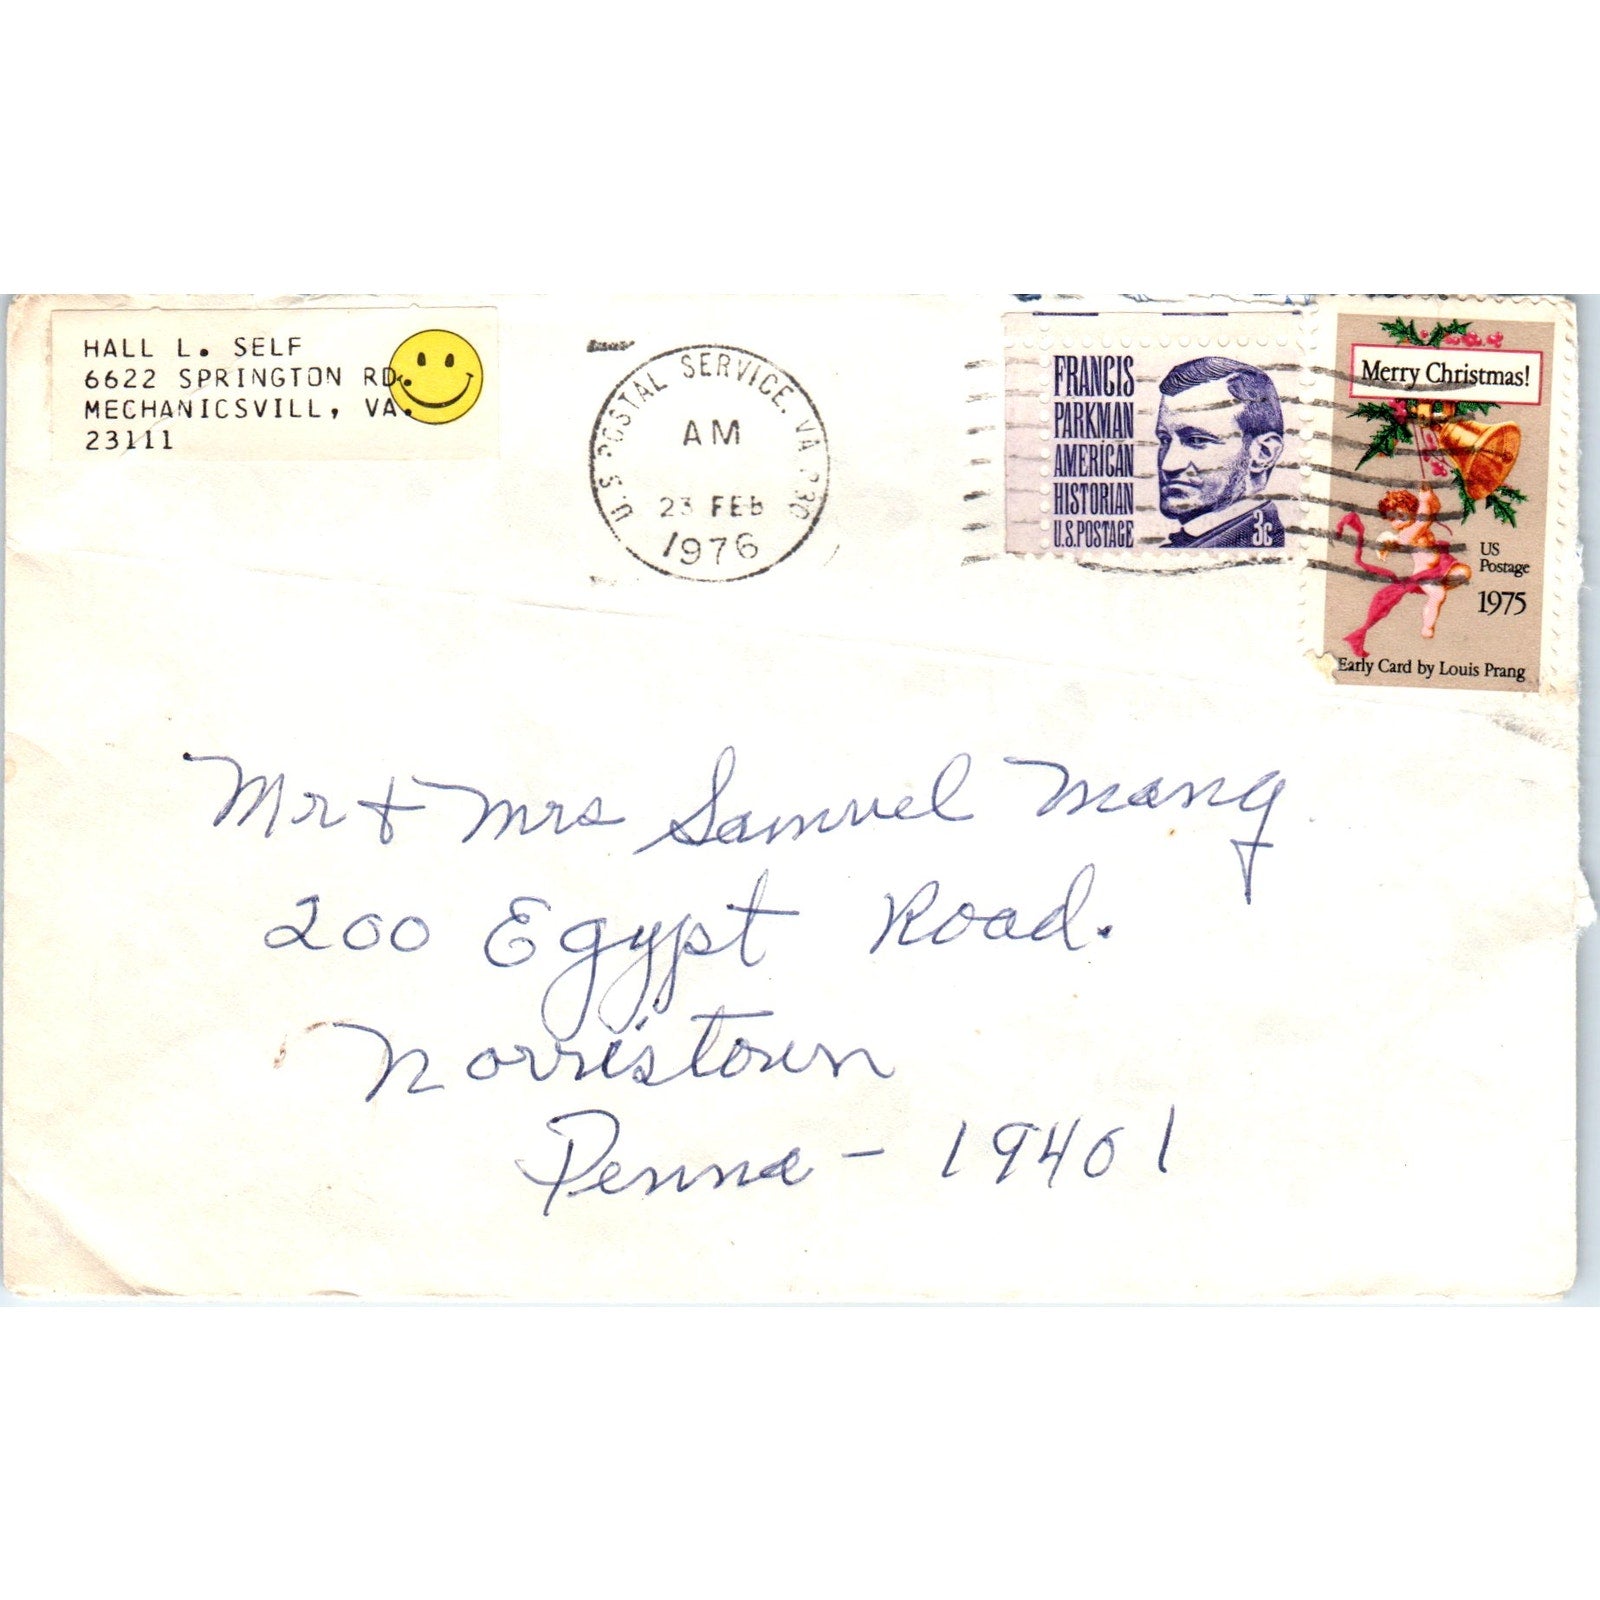 HALL L. SELF
6622 SPRINGTON RD.
MECHANICSVILL, VA.
23111
U.S. POSTAL SERVICE, VA
AM
23 FEB
1976
FRANCIS
PARKMAN
AMERICAN
HISTORIAN
U.S.POSTAGE
3c
Merry Christmas!
US
Postage
1975
Early Card by Louis Prang
Mr & Mrs Samuel Mang
200 Egypt Road.
Norristown
Penna - 19401